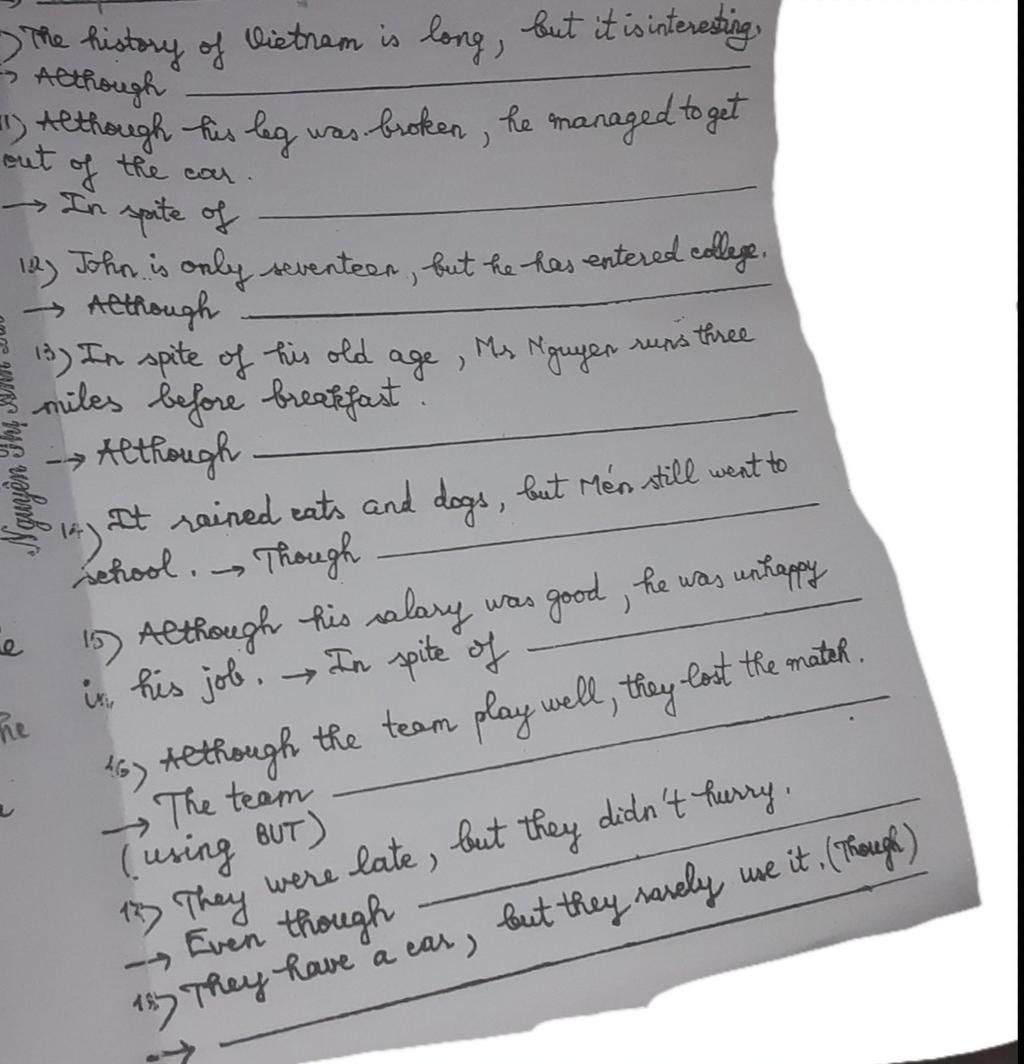 ) The history of Vietnam is long, but it is interesting.
→ Although
11) Although his leg was broken, he managed to get
out of the car.
→ In spite of
12) John is only seventeen, but he has entered college.
→ Although
13) In spite of his old age, Mr Nguyen runs three
miles before breakfast.
→ Although
14) It rained cats and dogs, but Mén still went to
school. → Though
15) Although his salary was good, he was unhappy
in his job. → In spite of
16) Although the team play well, they lost the match.
→ The team
(using BUT)
17) They were late, but they didn't hurry.
→ Even though
18) They have a car, but they rarely use it. (Though)
→
Nguyễn Thị
he